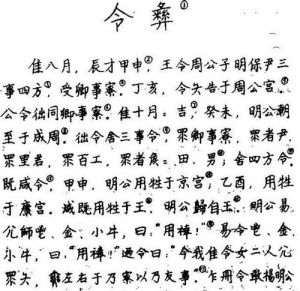 令彝①
隹八月，辰才甲申②，王令周公子明保尹三
事四方③，受卿事寮④。丁亥，令夨告于周公宫⑤。
公令𢓊同卿事寮⑥。隹十月月吉⑦癸未，明公朝
至于成周⑧。𢓊令舍三事令⑨，眔卿事寮，眔者尹，
眔里君，眔百工，眔者侯：侯、田、男，舍四方令。
既咸令⑩。甲申，明公用牲于京宫；乙酉，用牲
于康宫。咸既，用牲于王。明公歸自王。明公易
亢師鬯、金、小牛，曰：“用𥛱”；易令鬯、金、
小牛，曰：“用𥛱”。迺令曰：“今我隹令女二人亢
眔夨，奭左右于乃寮以乃友事”。乍册令敢揚明公